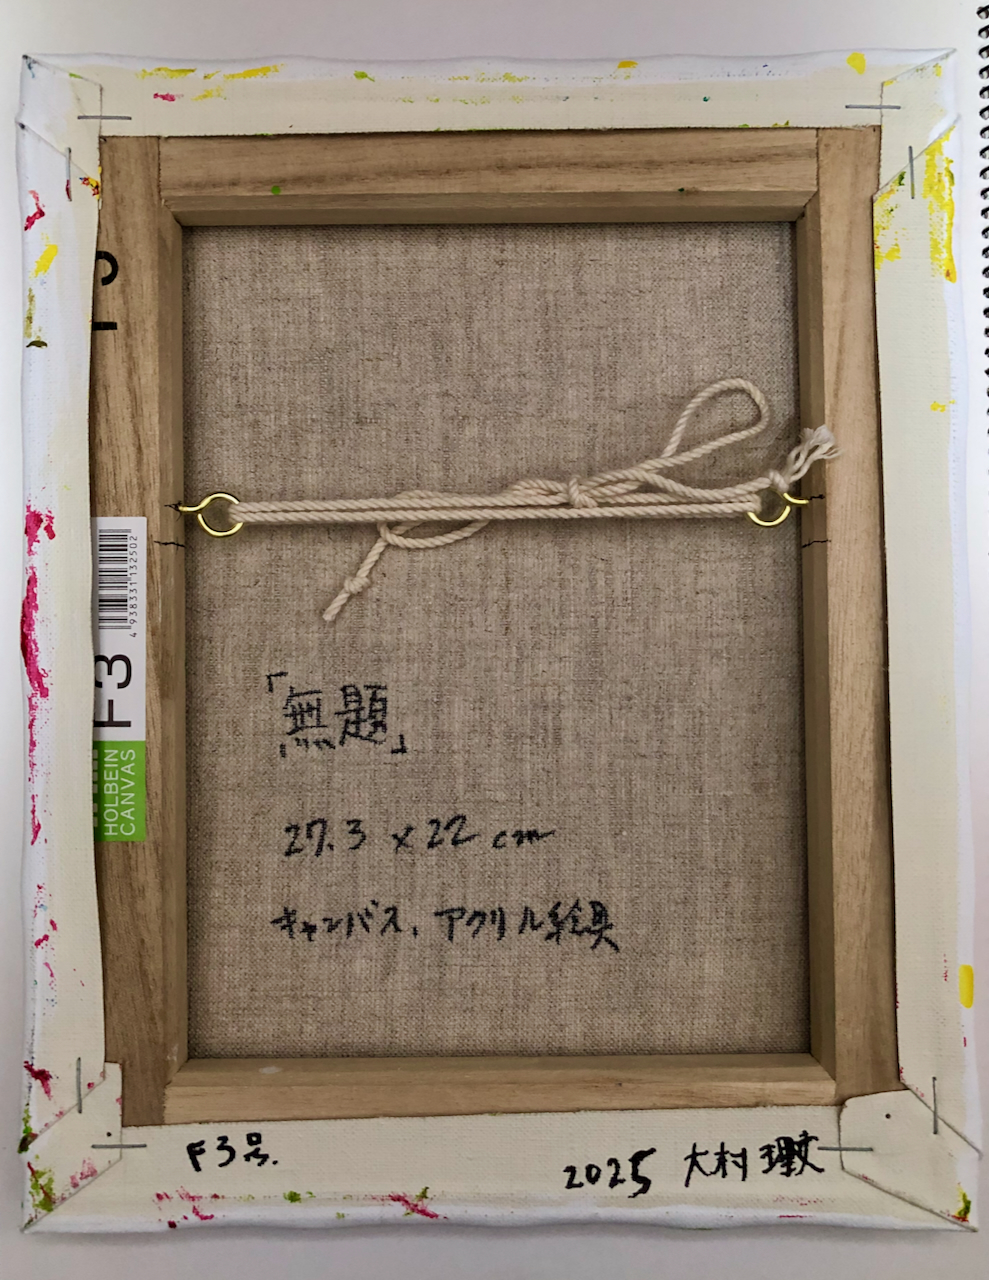 F3
4 938331 132502
F3
HOLBEIN
CANVAS
「無題」
27.3 × 22 cm
キャンバス、アクリル絵具
F3号.
2025 大村 理文